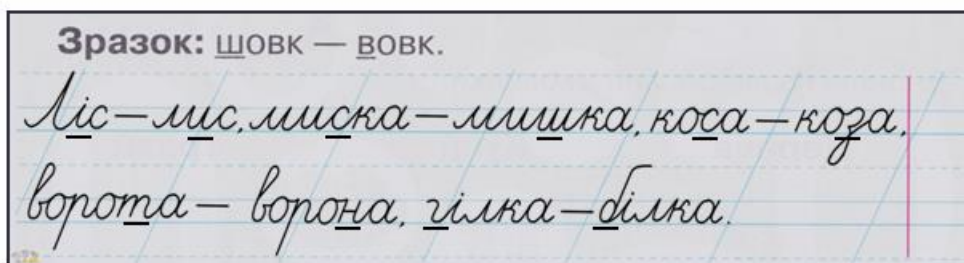 Зразок: шовк — вовк.
Ліс — лис, миска — мишка, коса — коза,
ворота — ворона, гілка — білка.